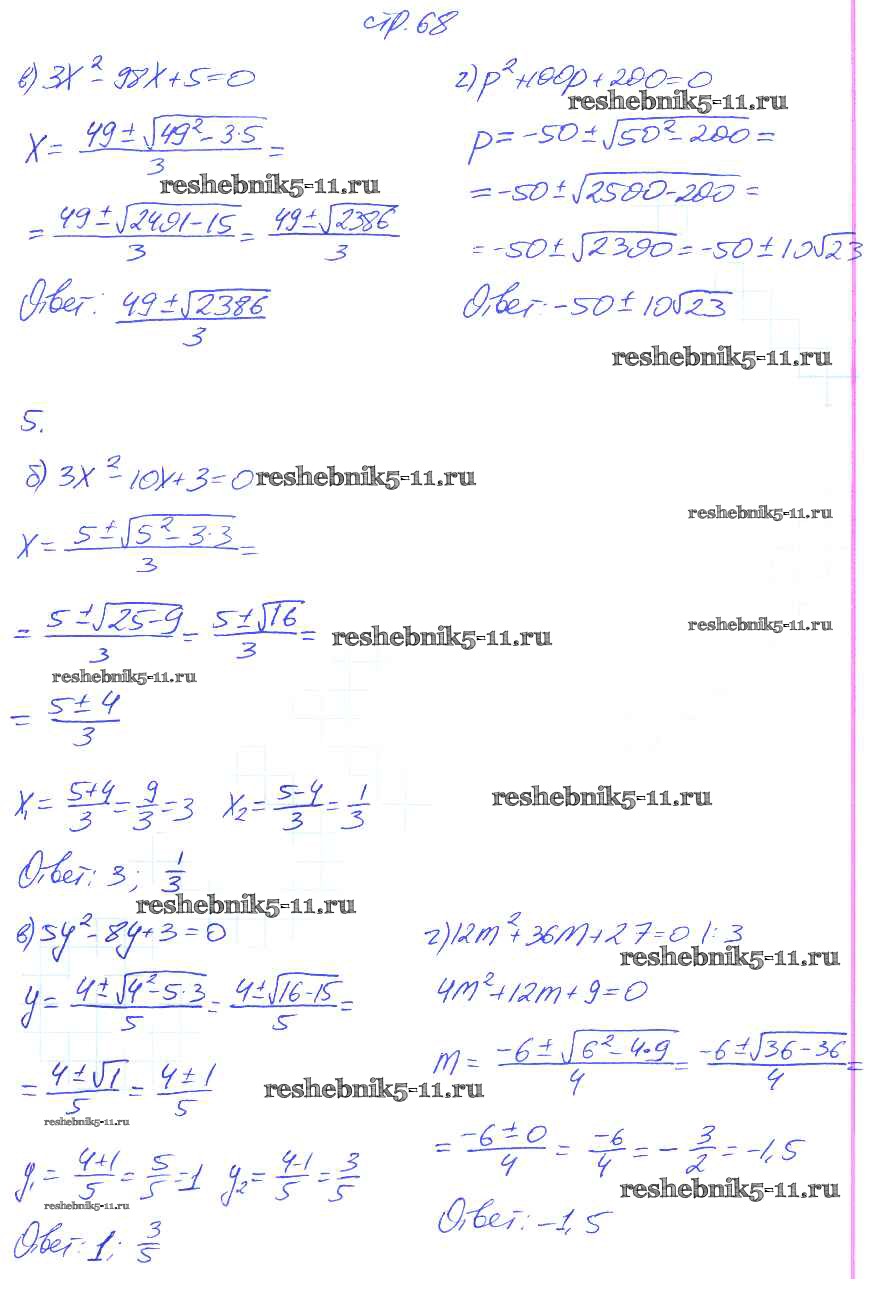 стр. 68
в) 3x² - 98x + 5 = 0
x = (49 ± √(49² - 3·5))/3 =
reshebnik5-11.ru
= (49 ± √(2401 - 15))/3 = (49 ± √2386)/3
Ответ: (49 ± √2386)/3
г) p² + 100p + 200 = 0
reshebnik5-11.ru
p = -50 ± √(50² - 200) =
= -50 ± √(2500 - 200) =
= -50 ± √2300 = -50 ± 10√23
Ответ: -50 ± 10√23
reshebnik5-11.ru
5.
б) 3x² - 10x + 3 = 0 reshebnik5-11.ru
reshebnik5-11.ru
x = (5 ± √(5² - 3·3))/3 =
= (5 ± √(25 - 9))/3 = (5 ± √16)/3 = reshebnik5-11.ru
reshebnik5-11.ru
reshebnik5-11.ru
= (5 ± 4)/3
x₁ = (5+4)/3 = 9/3 = 3 x₂ = (5-4)/3 = 1/3
reshebnik5-11.ru
Ответ: 3; 1/3
reshebnik5-11.ru
в) 5y² - 8y + 3 = 0
y = (4 ± √(4² - 5·3))/5 = (4 ± √(16 - 15))/5 =
= (4 ± √1)/5 = (4 ± 1)/5
reshebnik5-11.ru
reshebnik5-11.ru
y₁ = (4+1)/5 = 5/5 = 1 y₂ = (4-1)/5 = 3/5
reshebnik5-11.ru
Ответ: 1; 3/5
г) 12m² + 36m + 27 = 0 |: 3
reshebnik5-11.ru
4m² + 12m + 9 = 0
m = (-6 ± √(6² - 4·9))/4 = (-6 ± √(36 - 36))/4 =
= (-6 ± 0)/4 = -6/4 = -3/2 = -1,5
reshebnik5-11.ru
Ответ: -1,5